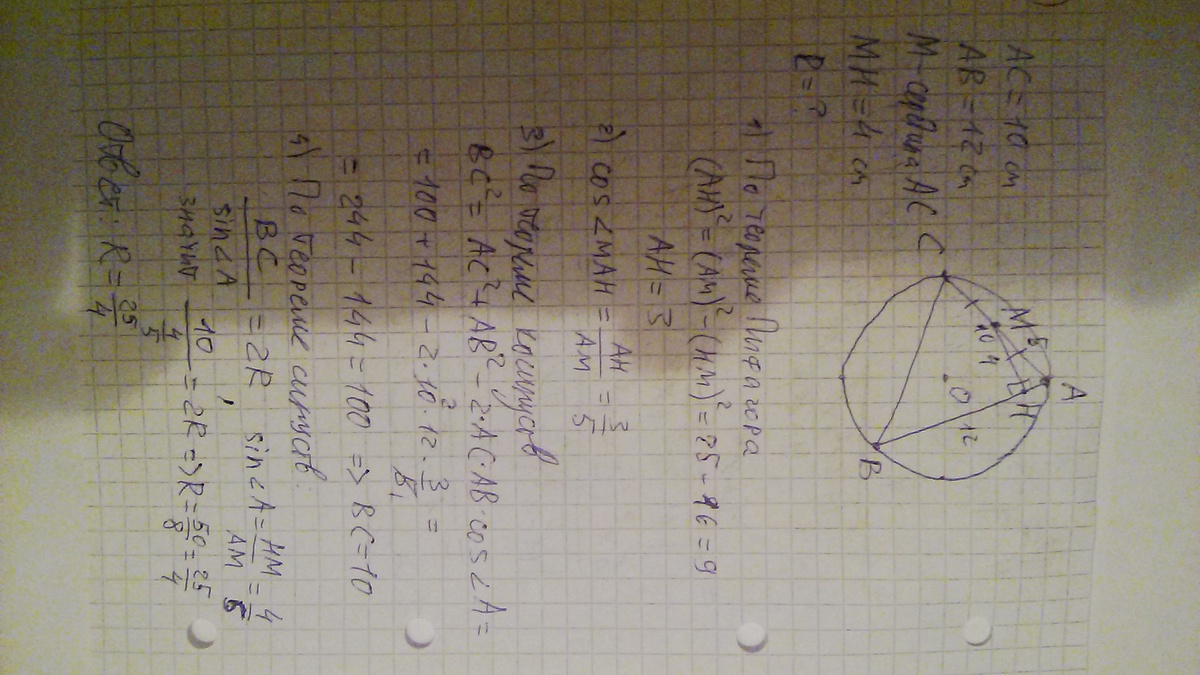 AC = 10 cm
AB = 12 cm
M - середина AC
MH = 4 cm
R = ?
A
M
5
10
4
H
O
12
C
B
1) По теореме Пифагора
(AH)² = (AM)² - (HM)² = 25 - 16 = 9
AH = 3
2) cos∠MAH = AH/AM = 3/5
3) По теореме косинусов
BC² = AC² + AB² - 2·AC·AB·cos∠A =
= 100 + 144 - 2·10²·12·3/5₁ =
= 244 - 144 = 100 => BC = 10
4) По теореме синусов:
BC/sin∠A = 2R, sin∠A = HM/AM = 4/5
значит 10/(4/5) = 2R => R = 50/8 = 25/4
Ответ: R = 25/4